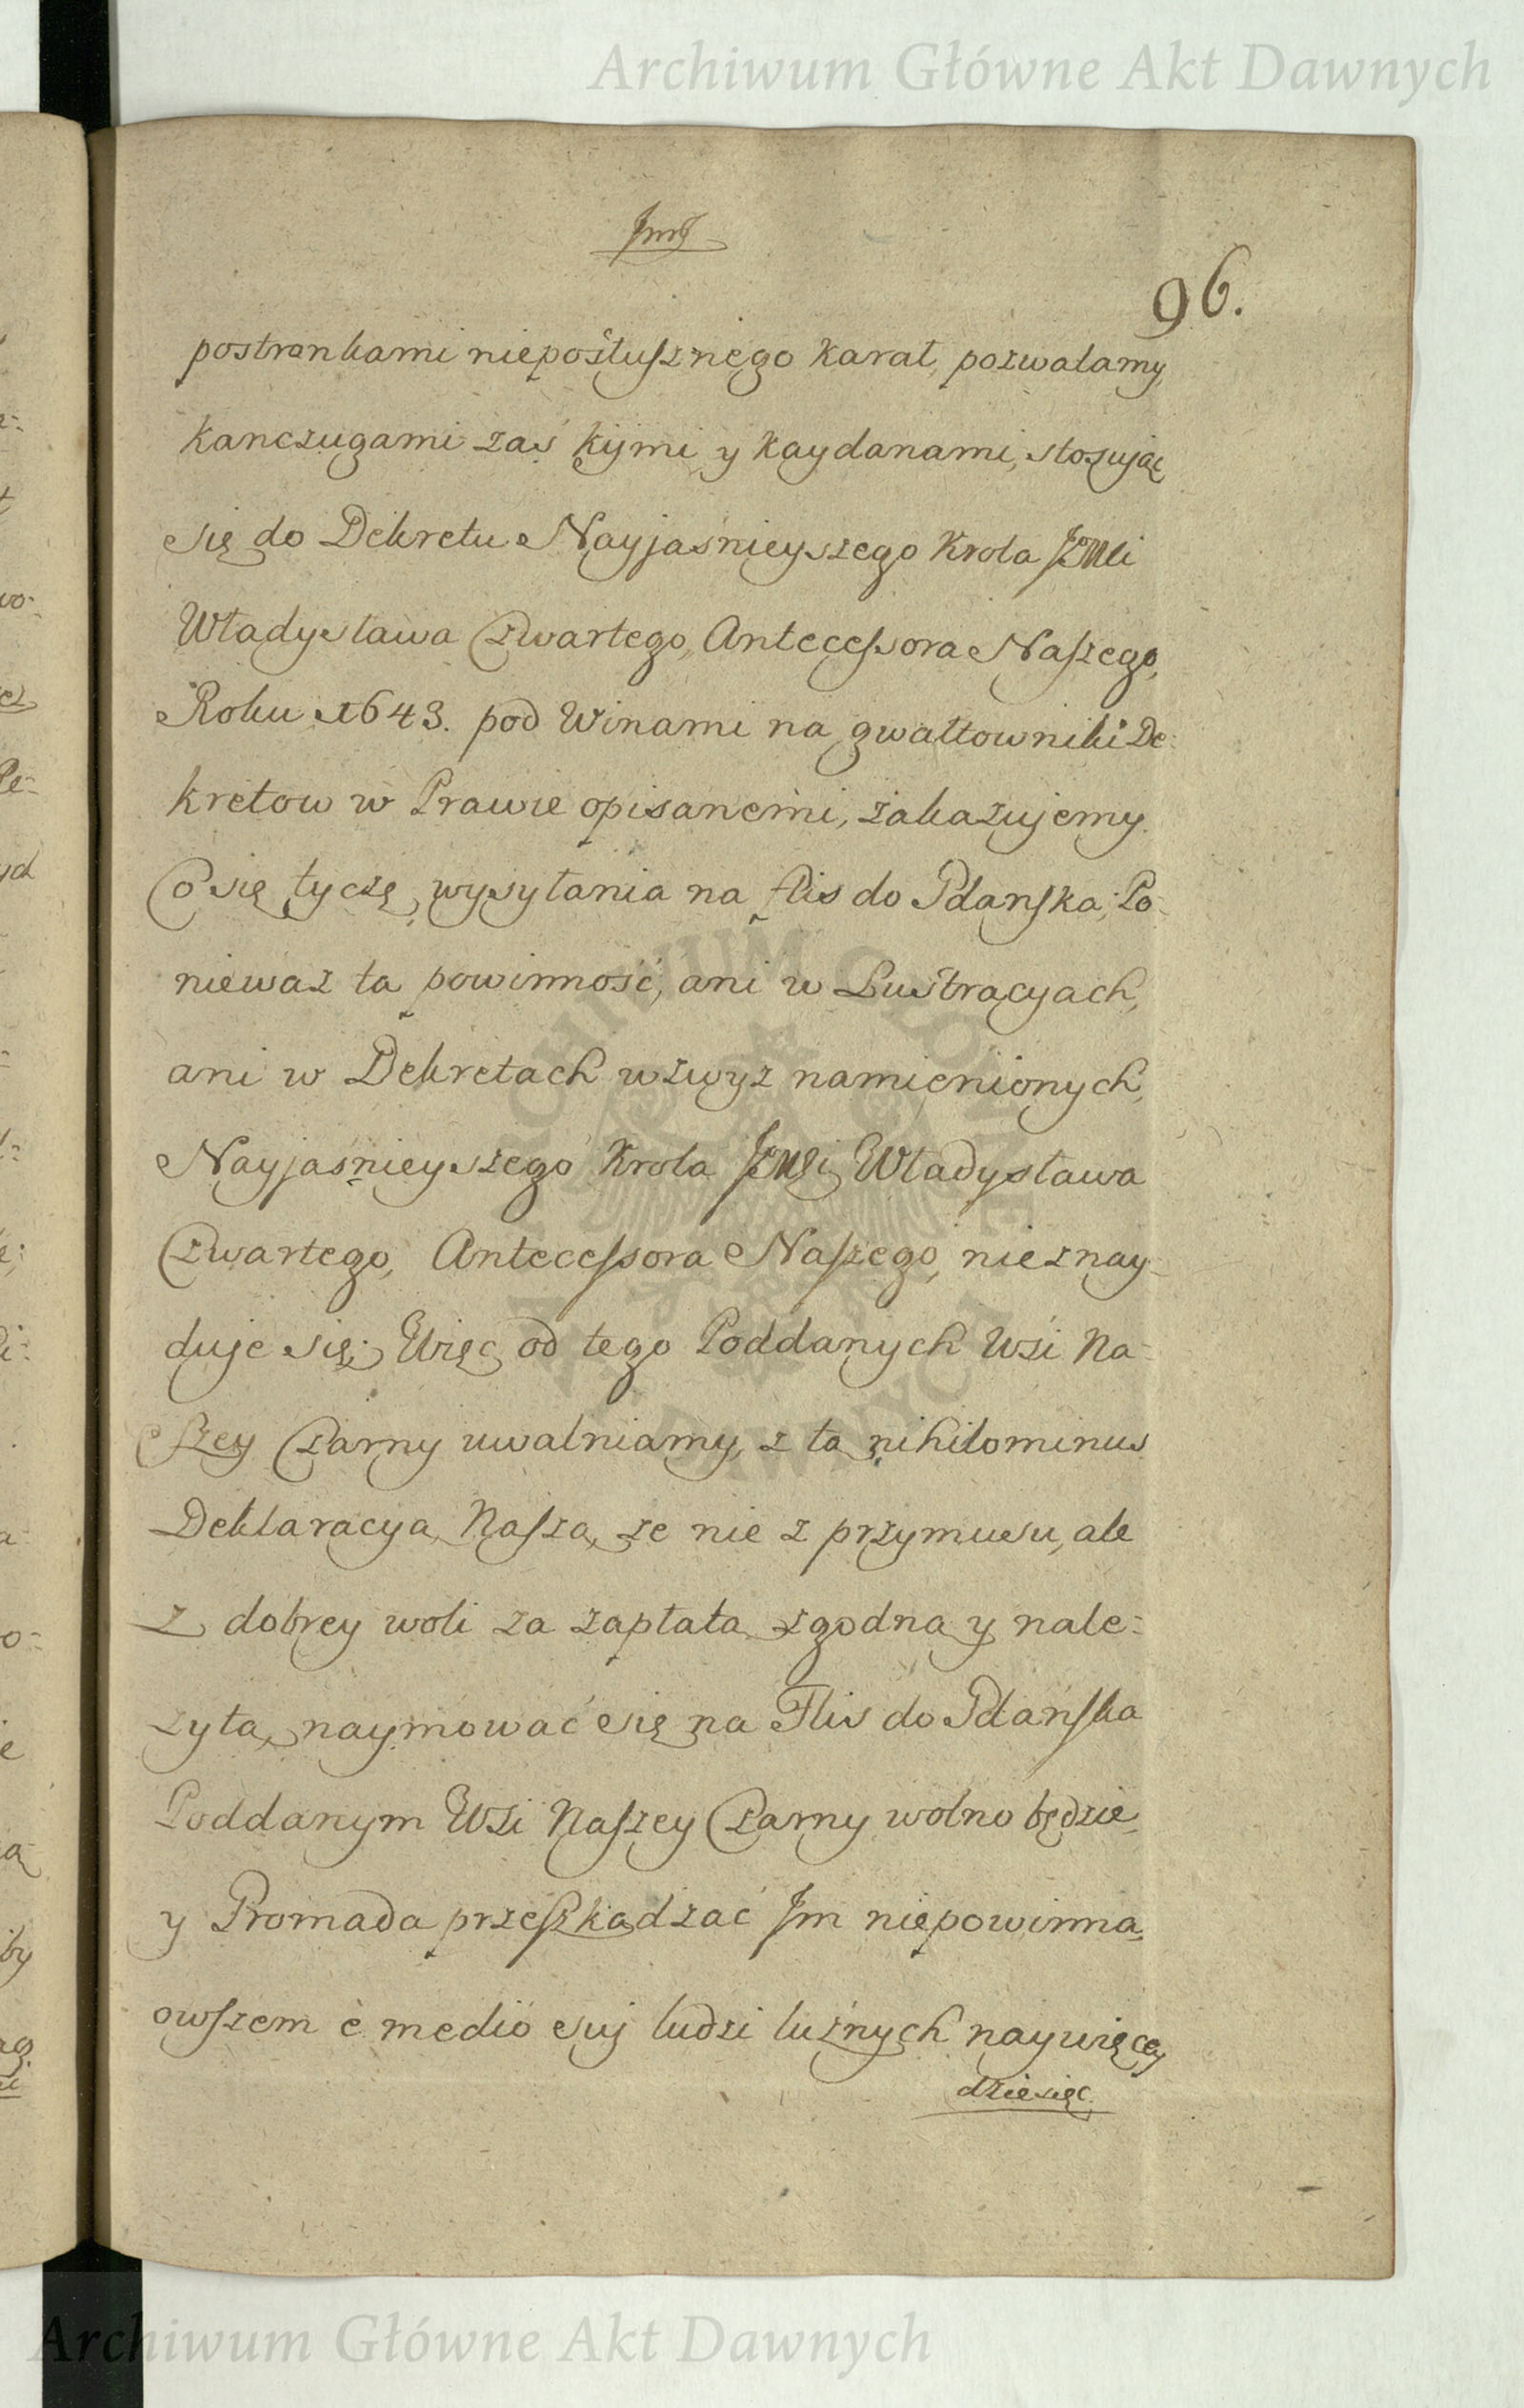 Archiwum Główne Akt Dawnych
96.
postronkami nieposłusznego karał, pozwalamy,
kanczugami zaś kijmi y kaydanami, stosując
się do Dekretu Nayjaśnieyszego Krola JgoMci
Władysława Czwartego, Antecessora Naszego,
Roku 1643. pod Winami na gwałtowniki De-
kretow w Prawie opisanemi, zakazujemy.
Co się tyczę wysyłania na flis do Gdanska; Po-
nieważ ta powinność, ani w Lustracyach,
ani w Dekretach wzwyż namienionych,
Nayjaśnieyszego Krola JgoMci Władysława
Czwartego, Antecessora Naszego, nieznay-
duje się; Więc od tego Poddanych Wsi Na-
szey Czarny uwalniamy, z tą nihilominus
Deklaracyą Naszą, że nie z przymusu, ale
z dobrey woli za zapłatą zgodną y nale-
żytą, naymować się na Flis do Gdańska
Poddanym Wsi Naszey Czarny wolno będzie,
y Gromada przeszkadzać Im niepowinna,
owszem è mediô suj ludzi luźnych naywięcey
dziesięc
ARCHIWUM GŁÓWNE AKT DAWNYCH
Archiwum Główne Akt Dawnych